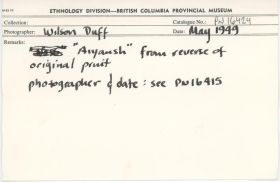 ETHNOLOGY DIVISION—BRITISH COLUMBIA PROVINCIAL MUSEUM
Collection: Catalogue No.: PN 16424
Photographer: Wilson Duff Date: May 1949
Remarks: "Aiyansh" from reverse of
original print
photographer & date: see PN16415